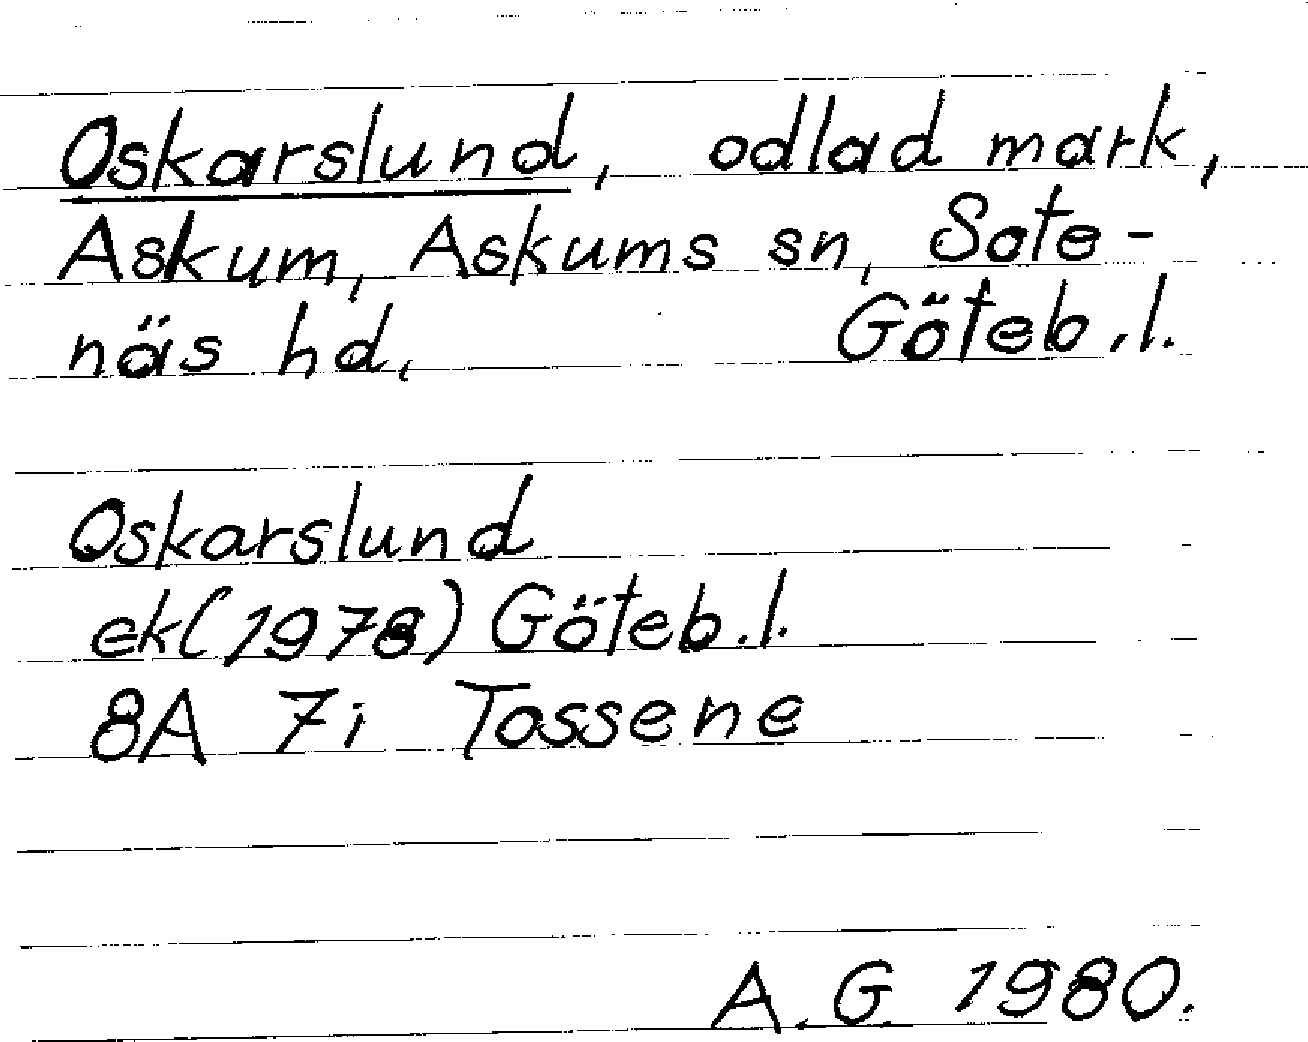 Oskarslund, odlad mark,
Askum, Askums sn, Sote-
näs hd, Göteb.l.
Oskarslund
ek(1978) Göteb.l.
8A 7i Tossene
A.G 1980.